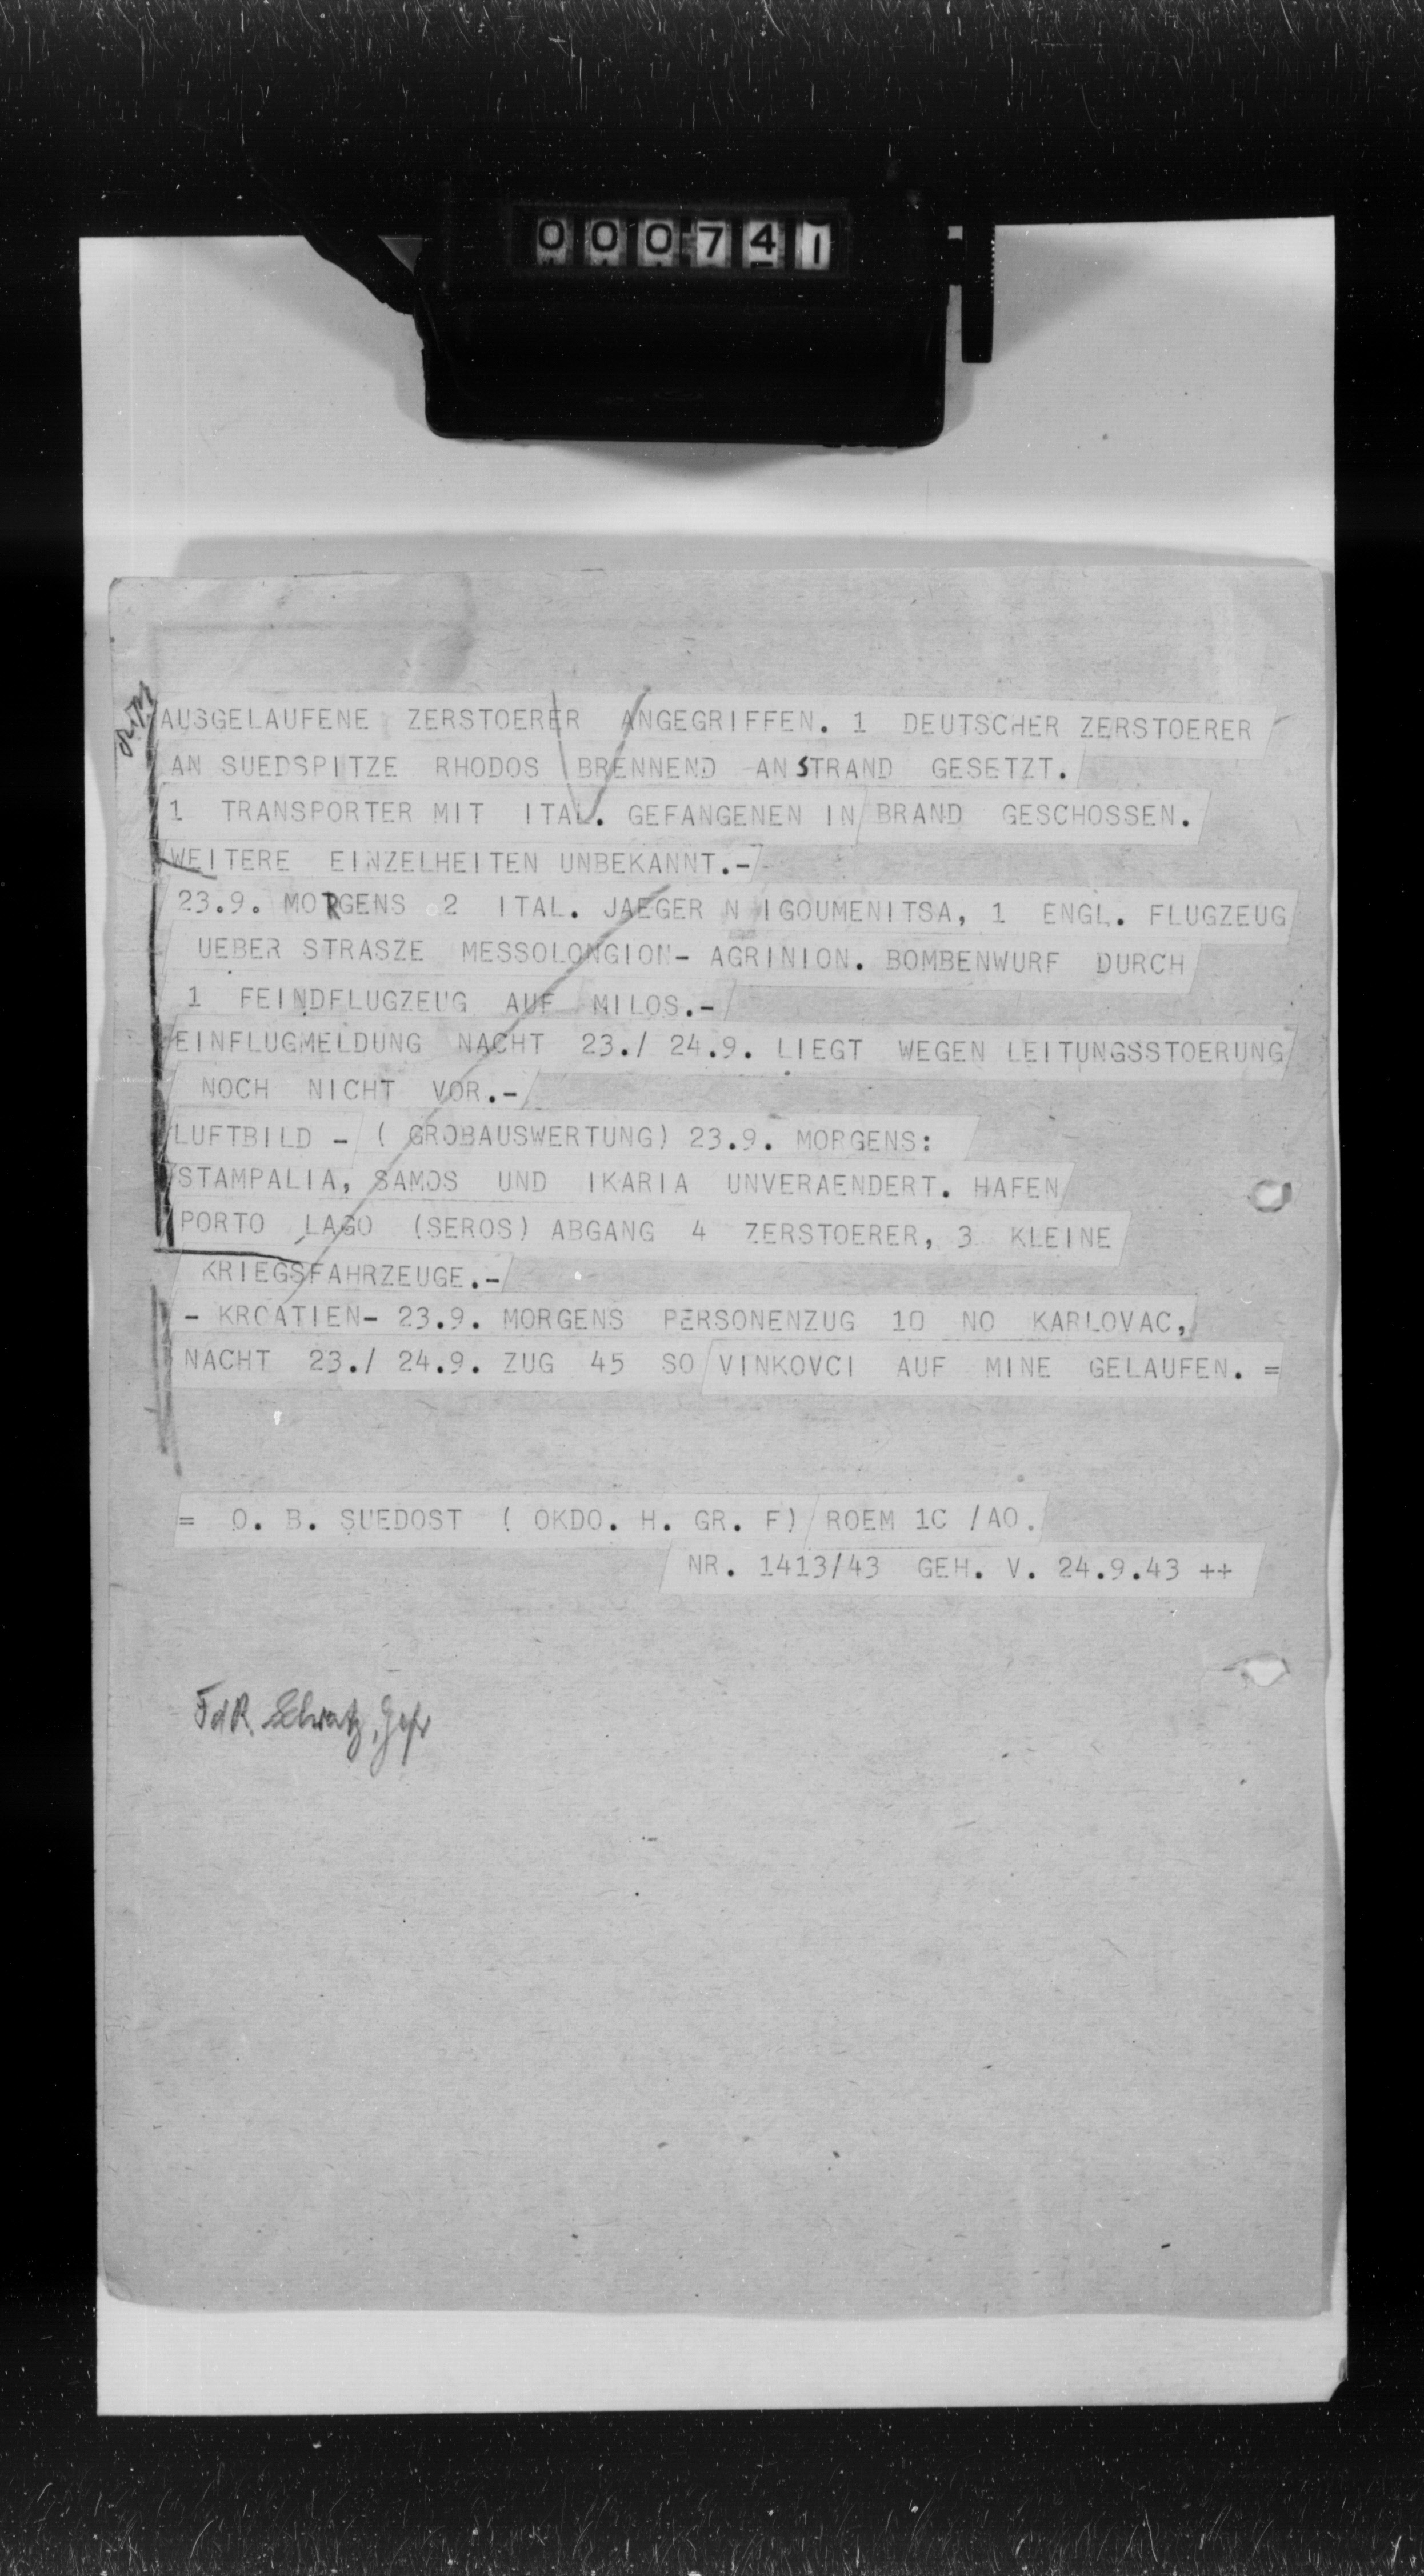 000741
AUSGELAUFENE ZERSTOERER ANGEGRIFFEN. 1 DEUTSCHER ZERSTOERER
AN SUEDSPITZE RHODOS BRENNEND AN STRAND GESETZT.
1 TRANSPORTER MIT ITAL. GEFANGENEN IN BRAND GESCHOSSEN.
WEITERE EINZELHEITEN UNBEKANNT.-
23.9. MORGENS 2 ITAL. JAEGER N IGOUMENITSA, 1 ENGL. FLUGZEUG
UEBER STRASZE MESSOLONGION- AGRINION. BOMBENWURF DURCH
1 FEINDFLUGZEUG AUF MILOS.-
EINFLUGMELDUNG NACHT 23./ 24.9. LIEGT WEGEN LEITUNGSSTOERUNG
NOCH NICHT VOR.-
LUFTBILD - ( GROBAUSWERTUNG) 23.9. MORGENS:
STAMPALIA, SAMOS UND IKARIA UNVERAENDERT. HAFEN
PORTO LAGO (SEROS) ABGANG 4 ZERSTOERER, 3 KLEINE
KRIEGSFAHRZEUGE.-
- KROATIEN- 23.9. MORGENS PERSONENZUG 10 NO KARLOVAC,
NACHT 23./ 24.9. ZUG 45 SO VINKOVCI AUF MINE GELAUFEN. =
= O. B. SUEDOST ( OKDO. H. GR. F) ROEM 1C /AO.
NR. 1413/43 GEH. V. 24.9.43 ++
FdR. Gefr